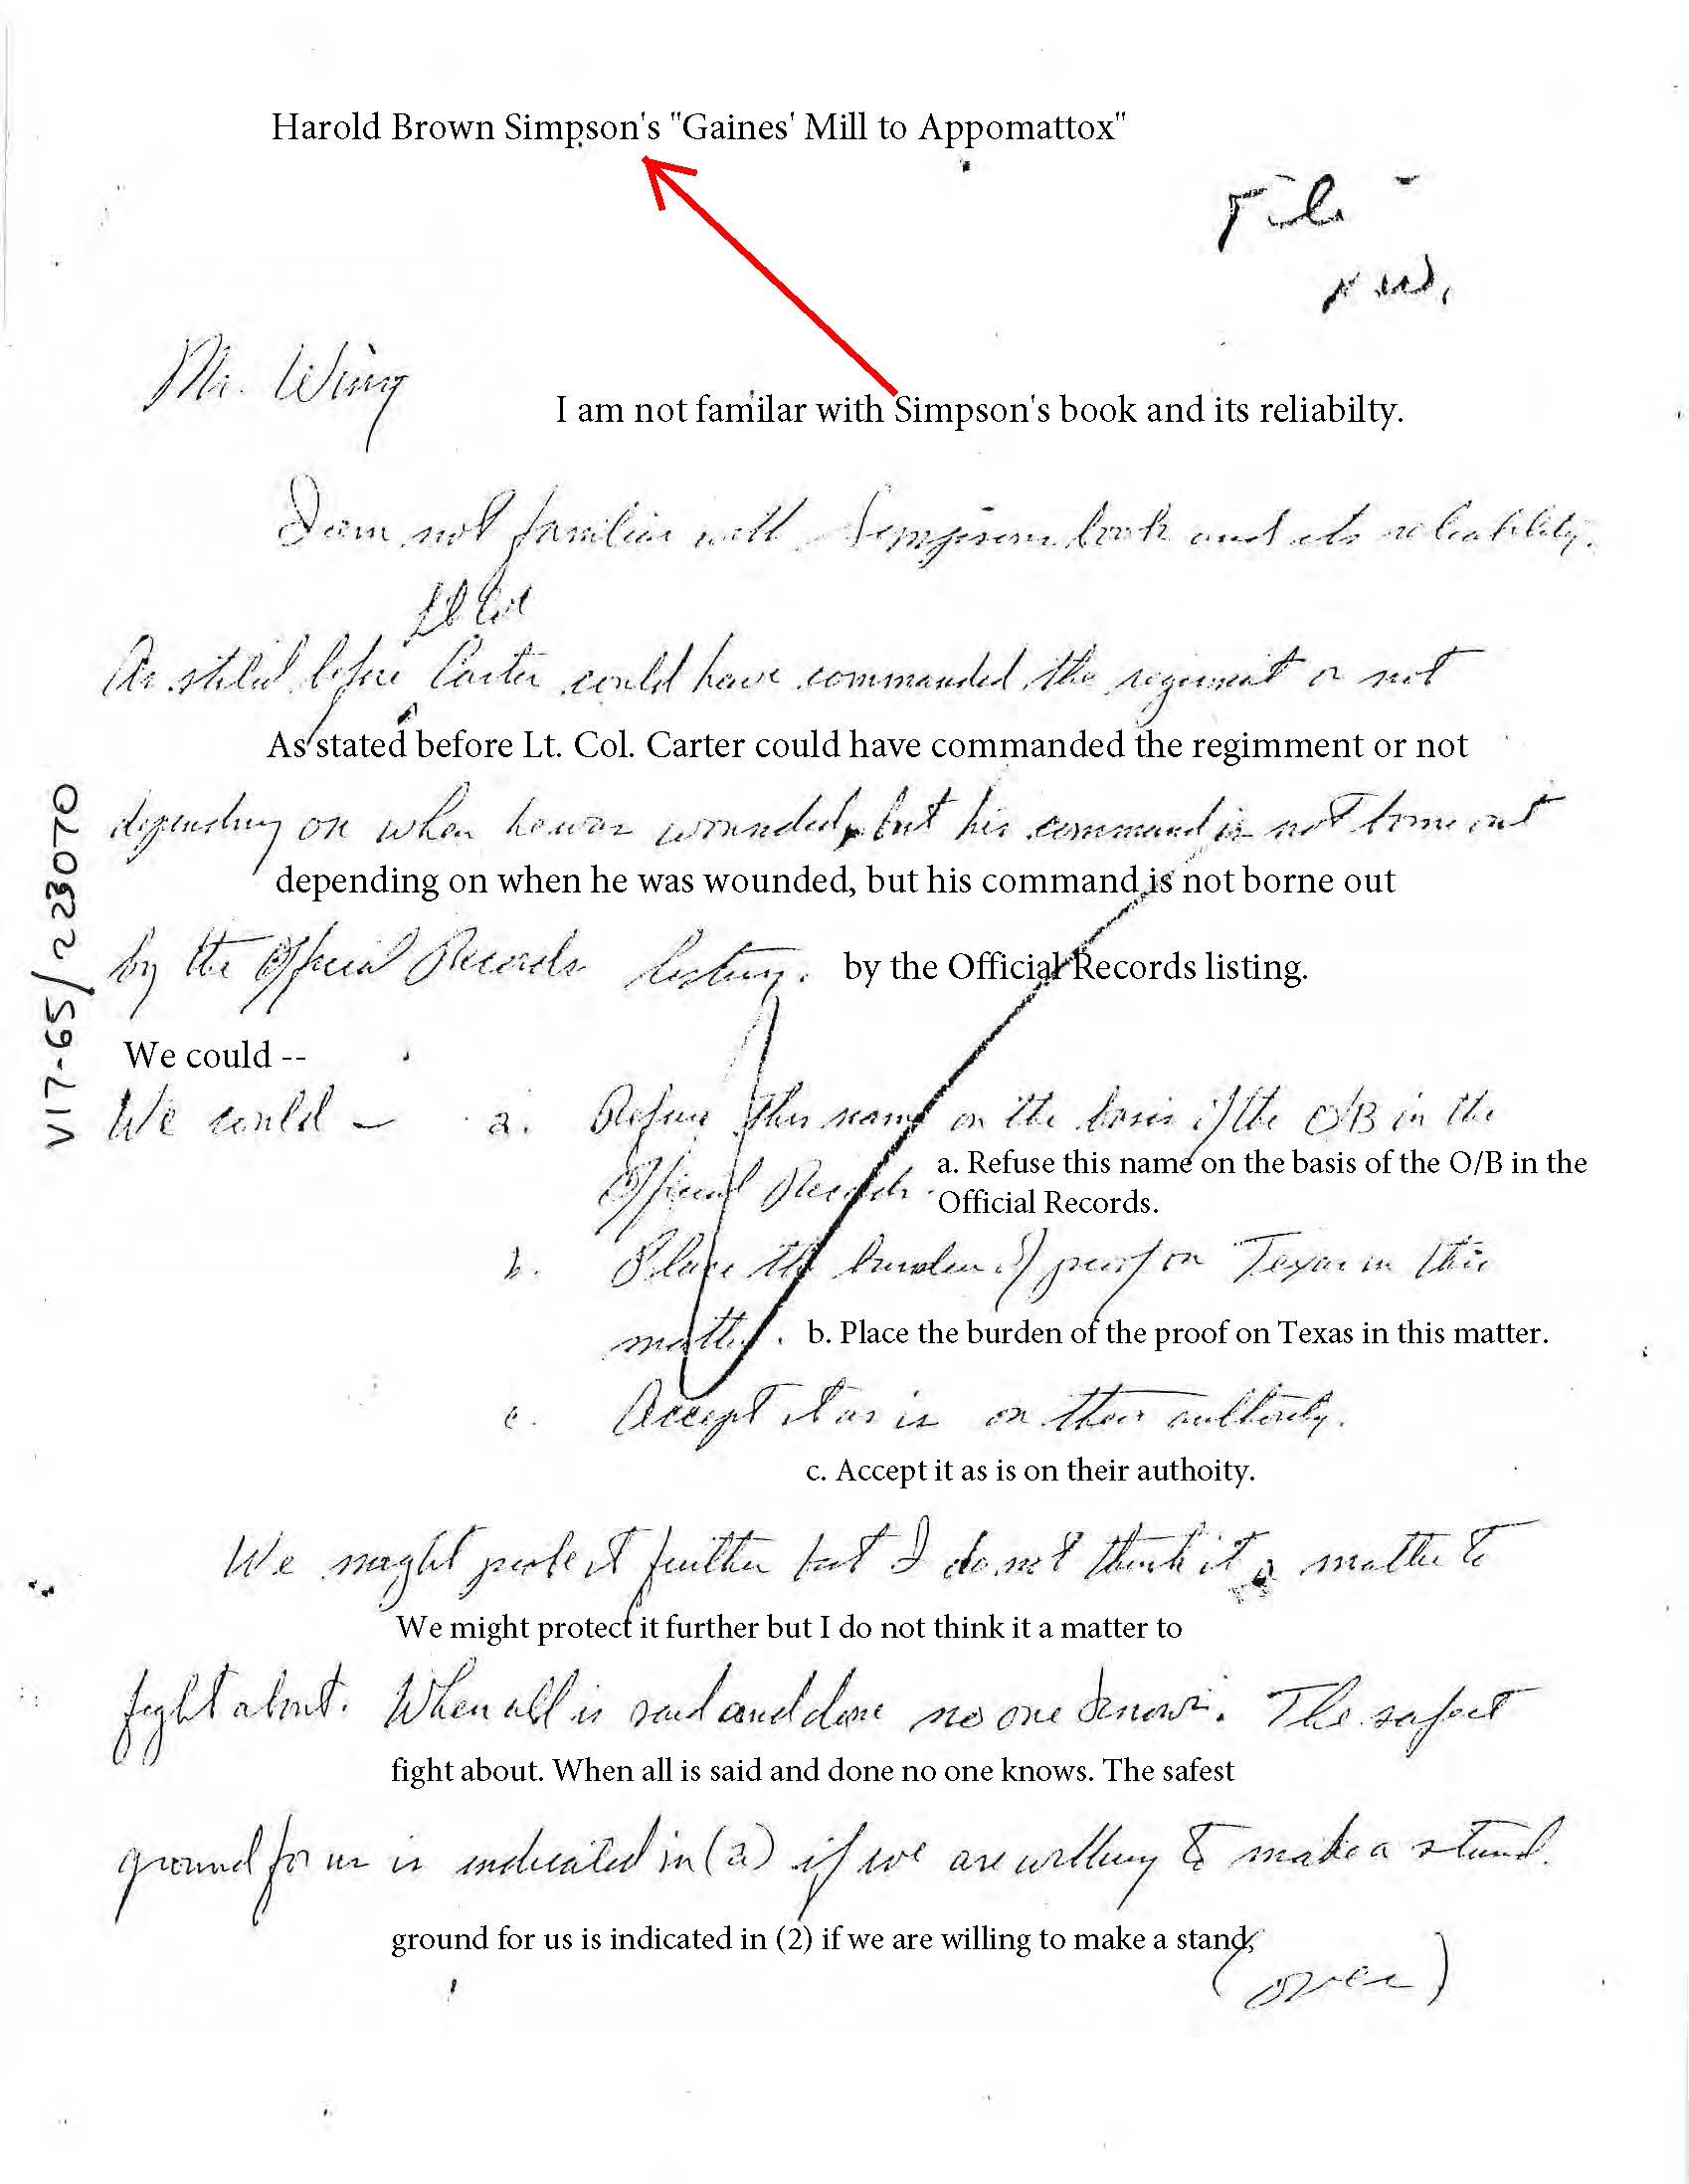 Harold Brown Simpson's "Gaines' Mill to Appomattox"
File -
Mr. Wing
I am not familar with Simpson's book and its reliabilty.
I am not familiar with Simpson book and its reliability.
Lt Col
As stated before Carter could have commanded the regiment or not
As stated before Lt. Col. Carter could have commanded the regimment or not
depending on when he was wounded, but his command is not borne out
depending on when he was wounded, but his command is not borne out
by the Official Records listing. by the Official Records listing.
V17-65/223070
We could --
We could – a. Refuse this name on the basis of the O/B in the
a. Refuse this name on the basis of the O/B in the
Official Records. Official Records.
b. Place the burden of proof on Texas in this
matter. b. Place the burden of the proof on Texas in this matter.
c. Accept it as is on their authority.
c. Accept it as is on their authoity.
We might protest further but I do not think it a matter to
We might protect it further but I do not think it a matter to
fight about. When all is said and done no one knows. The safest
fight about. When all is said and done no one knows. The safest
ground for us is indicated in (a) if we are willing to make a stand.
ground for us is indicated in (2) if we are willing to make a stand,
(over)